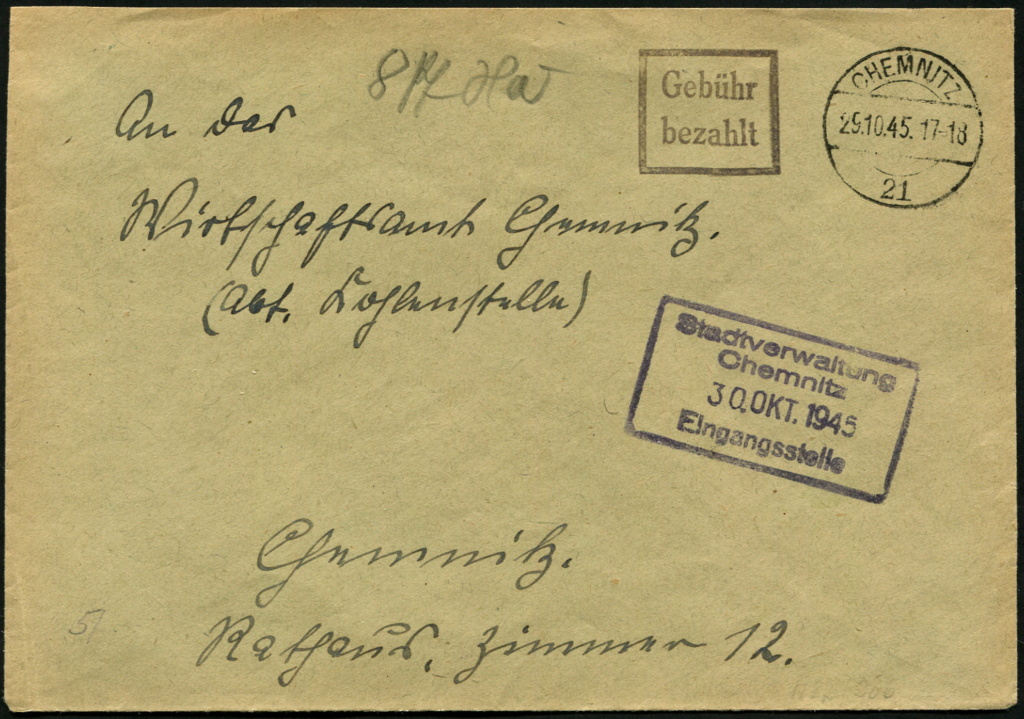 8 Pf
Gebühr
bezahlt
CHEMNITZ
29.10.45. 17-18
21
An das
Wirtschaftsamt Chemnitz.
(Abt. Kohlenstelle)
Stadtverwaltung
Chemnitz
30. OKT. 1945
Eingangsstelle
Chemnitz.
Rathaus, Zimmer 12.